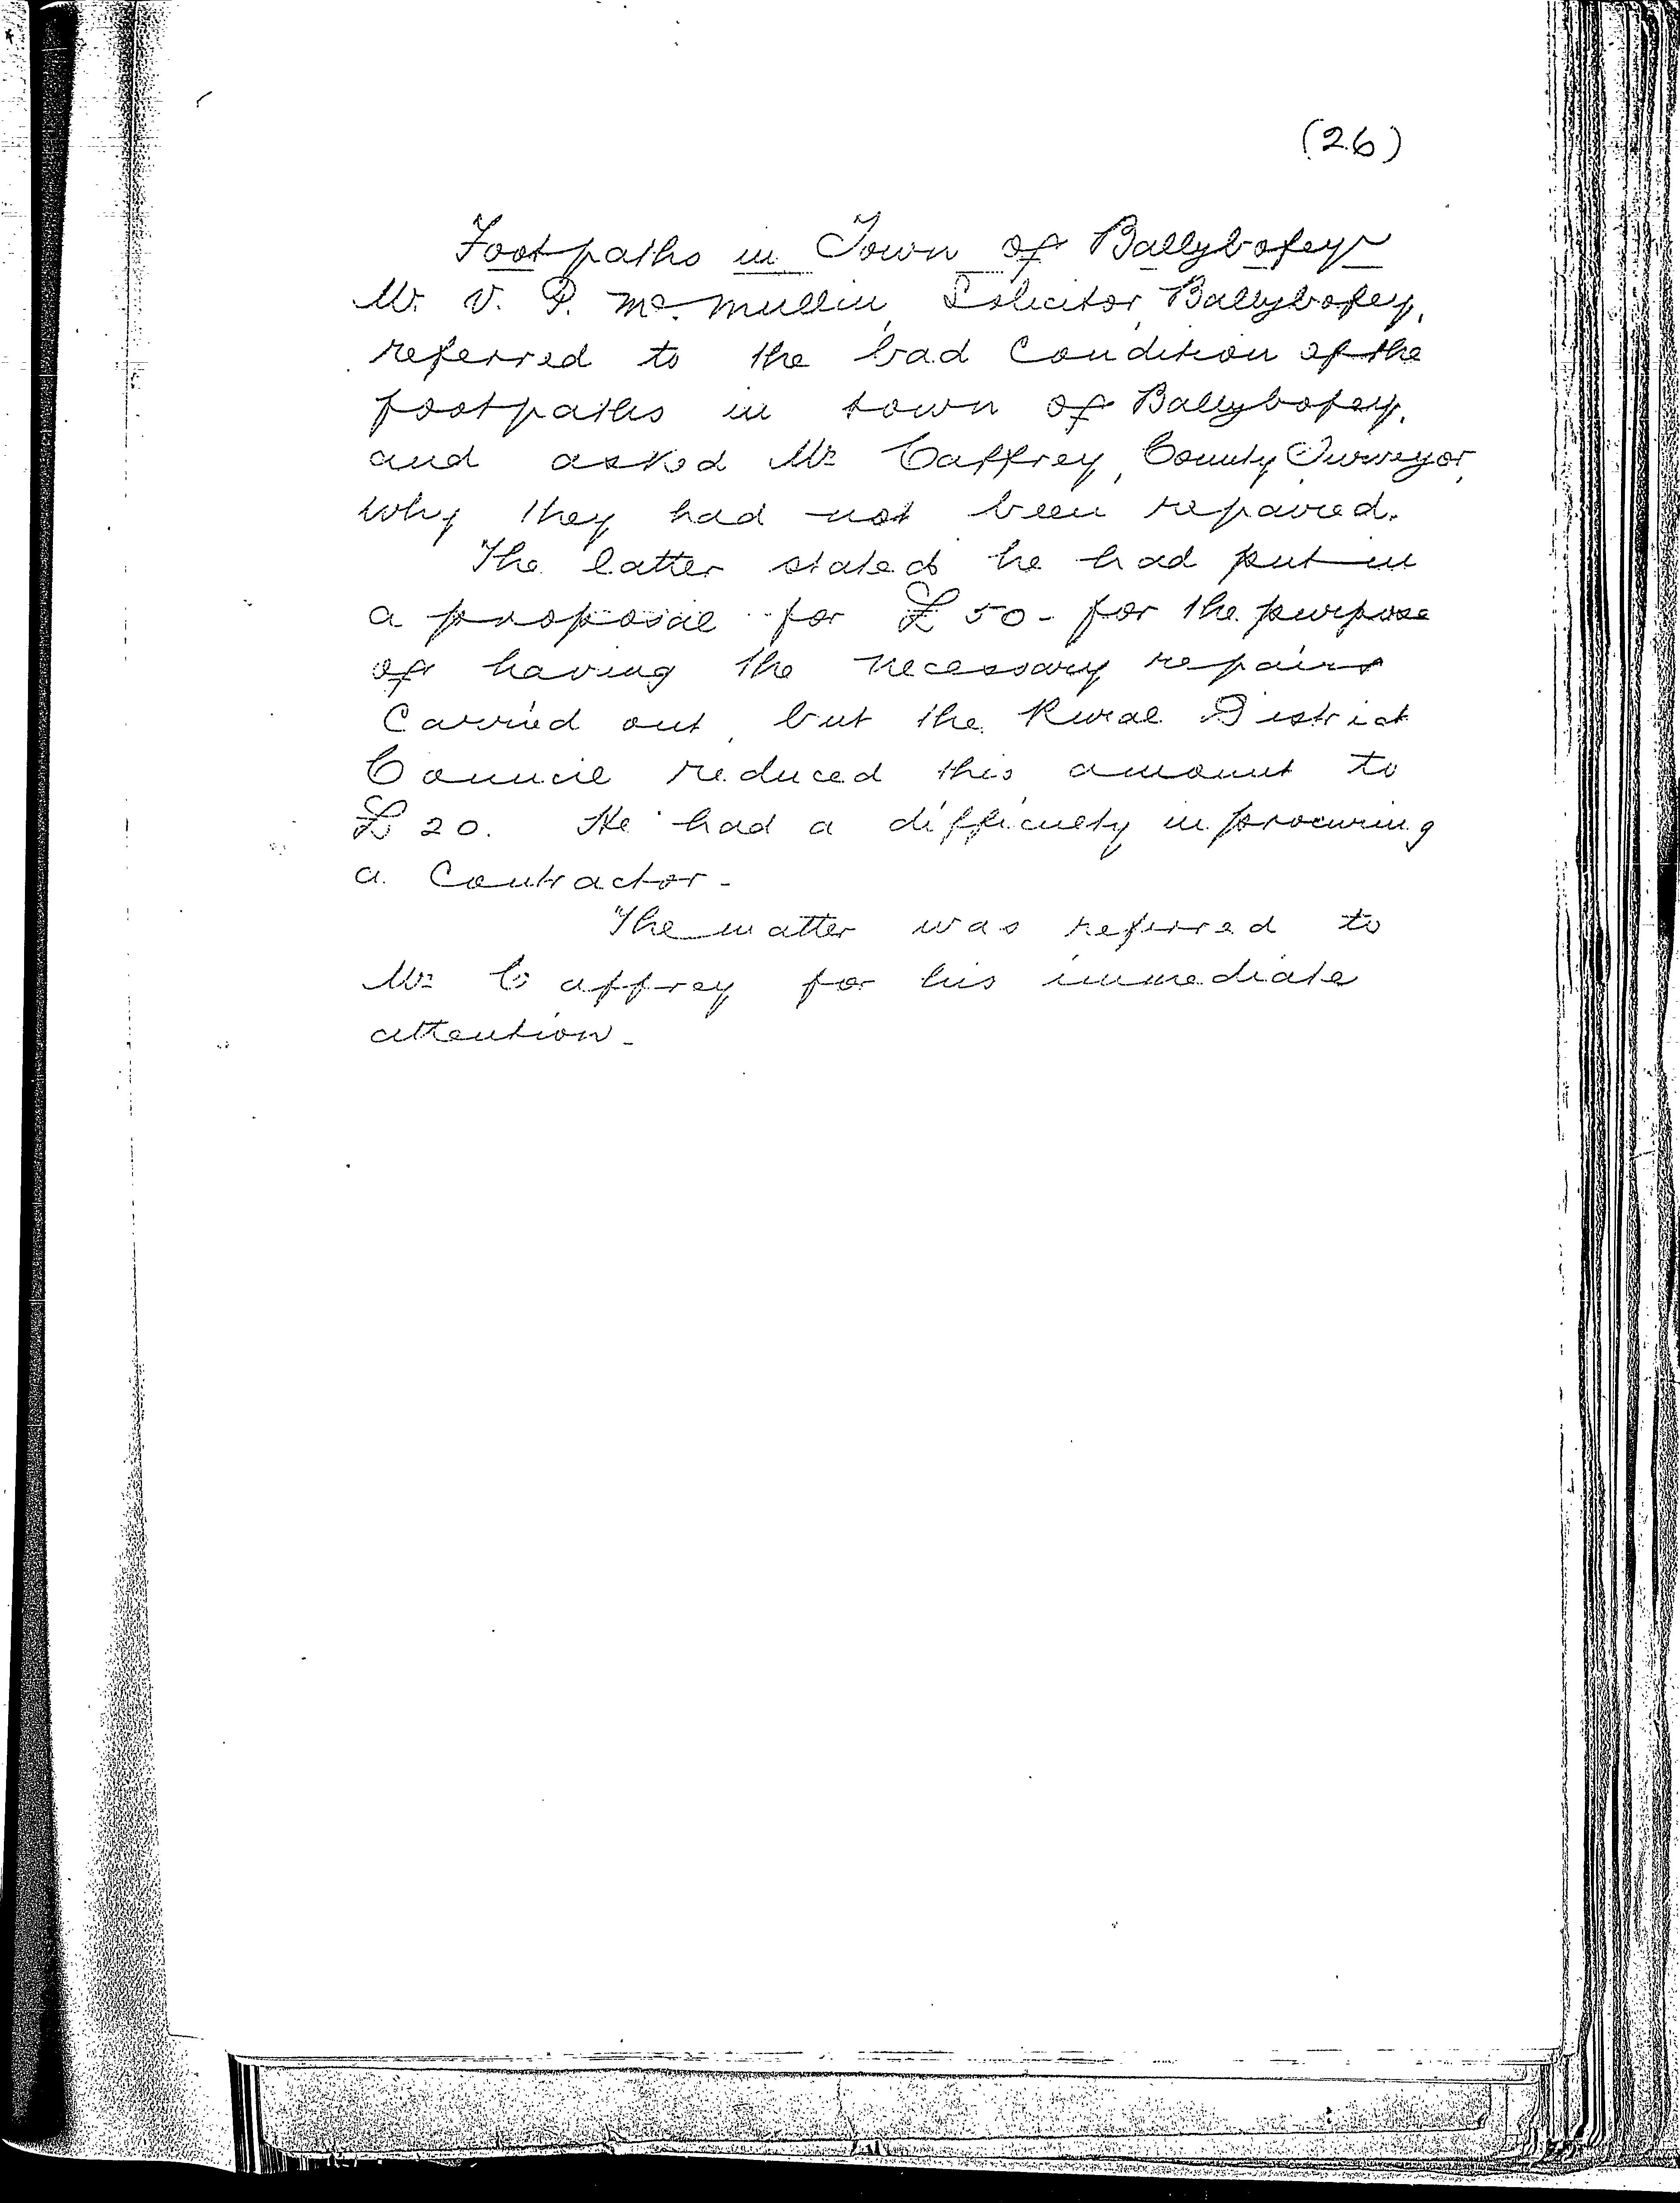 (26)
Footpaths in Town of Ballybofey
Mr. V. P. McMullin, Solicitor, Ballybofey,
referred to the bad condition of the
footpaths in town of Ballybofey,
and asked Mr Caffrey, County Surveyor,
why they had not been repaired.
The latter stated he had put in
a proposal for £50- for the purpose
of having the necessary repairs
carried out, but the Rural District
Council reduced this amount to
£20. He had a difficulty in procuring
a Contractor-
The matter was referred to
Mr Caffrey for his immediate
attention-